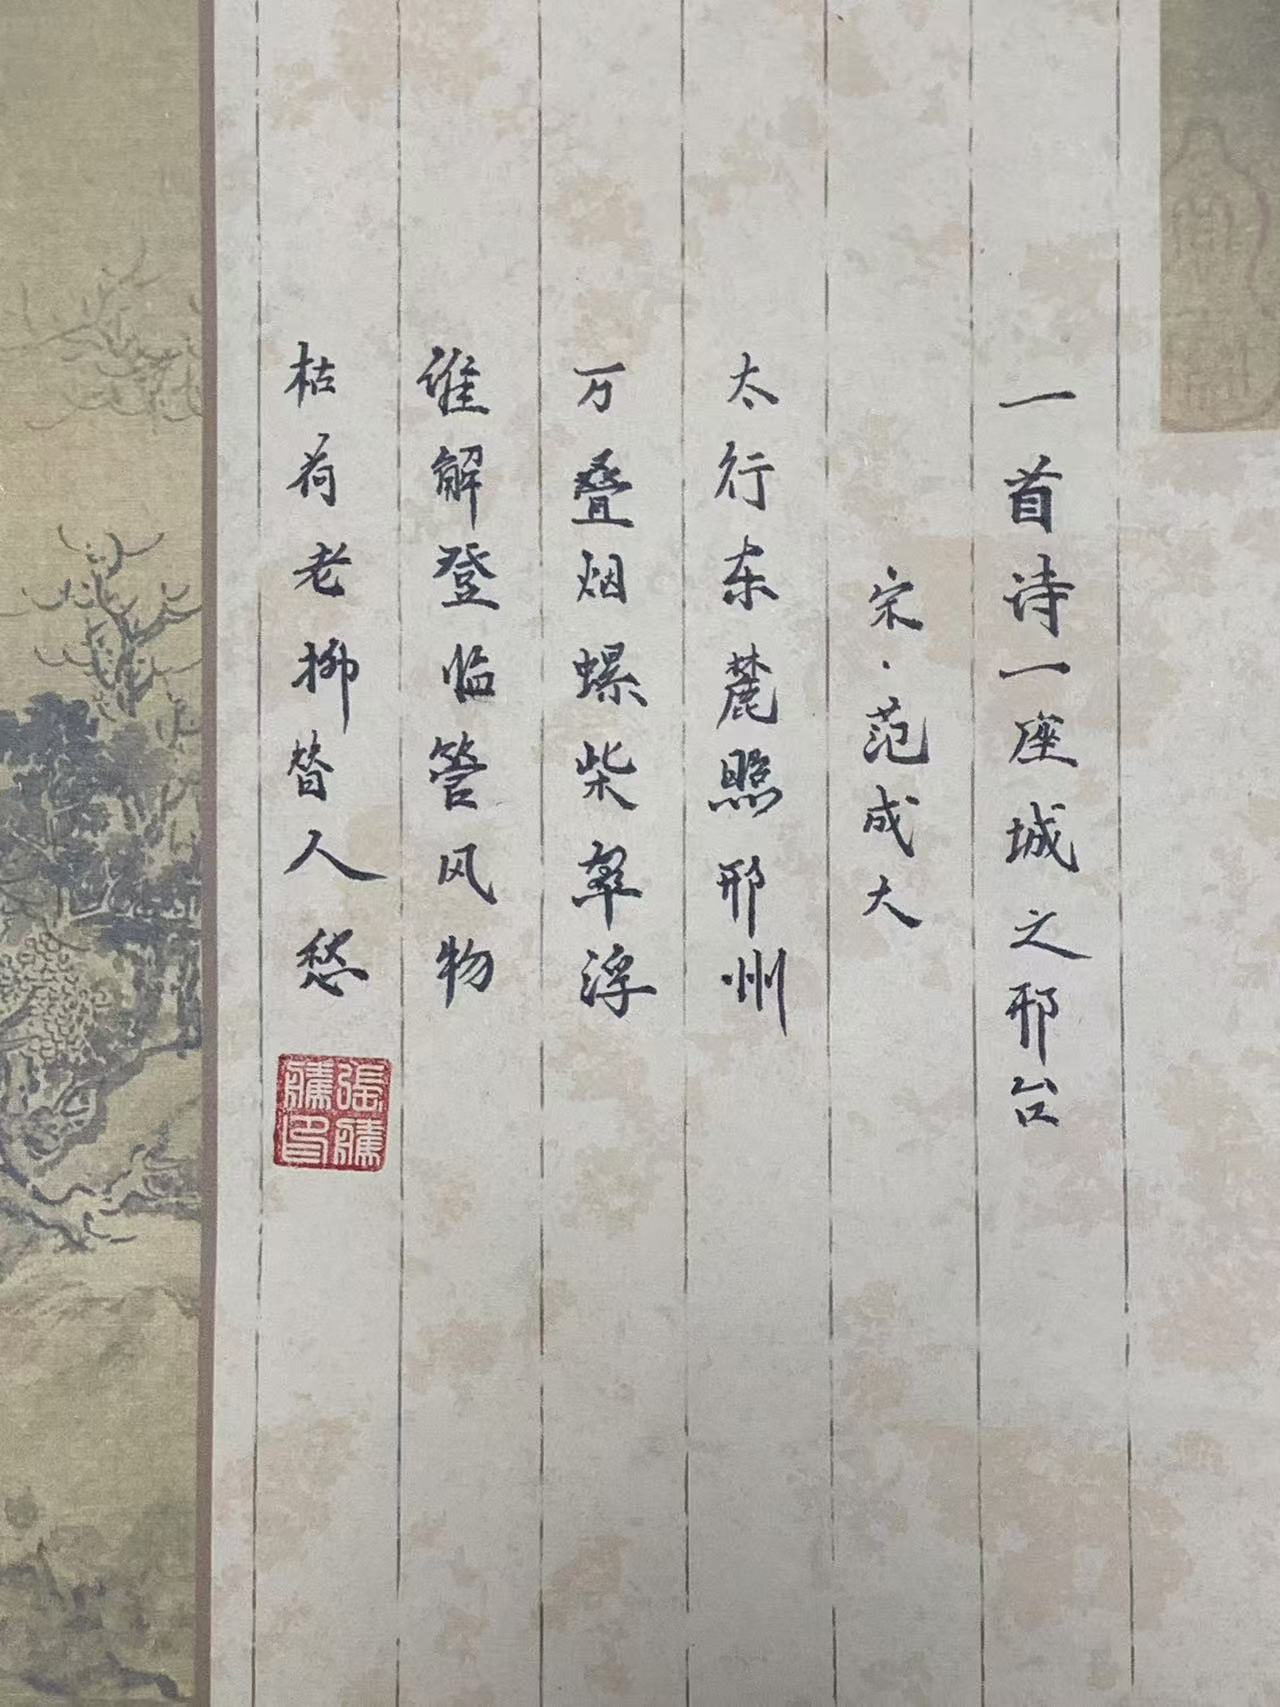 一首诗一座城之邢台
宋·范成大
太行东麓照邢州
万叠烟螺柴翠浮
谁解登临管风物
枯荷老柳替人愁
張騰騰印